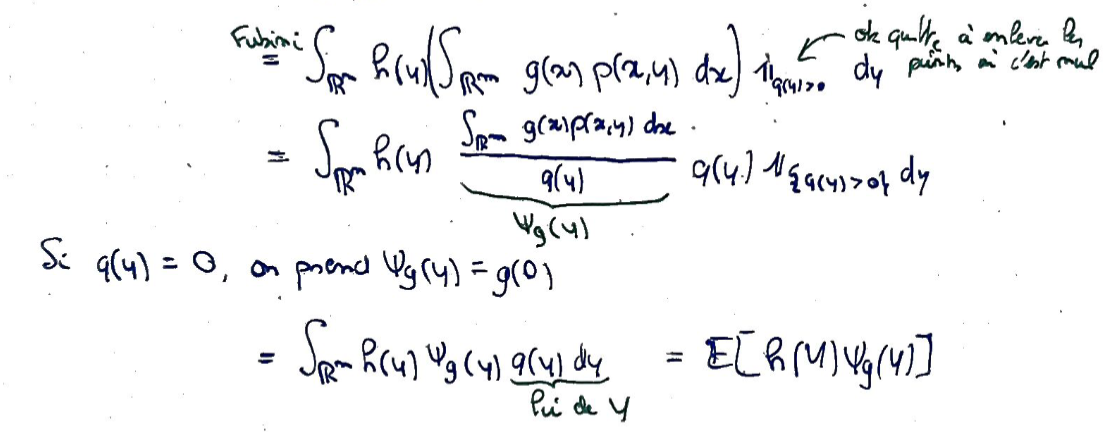 Fubini = ∫_{ℝ^n} h(y) (∫_{ℝ^m} g(x) p(x,y) dx) 𝟙_{q(y)>0} dy ← ok quitte à enlever les points où c'est nul
= ∫_{ℝ^n} h(y) \frac{∫_{ℝ^m} g(x) p(x,y) dx}{q(y)} q(y) 𝟙_{\{q(y)>0\}} dy
Ψ_g(y)
Si q(y) = 0, on prend Ψ_g(y) = g(0)
= ∫_{ℝ^n} h(y) Ψ_g(y) q(y) dy = 𝔼[h(Y) Ψ_g(Y)]
loi de Y